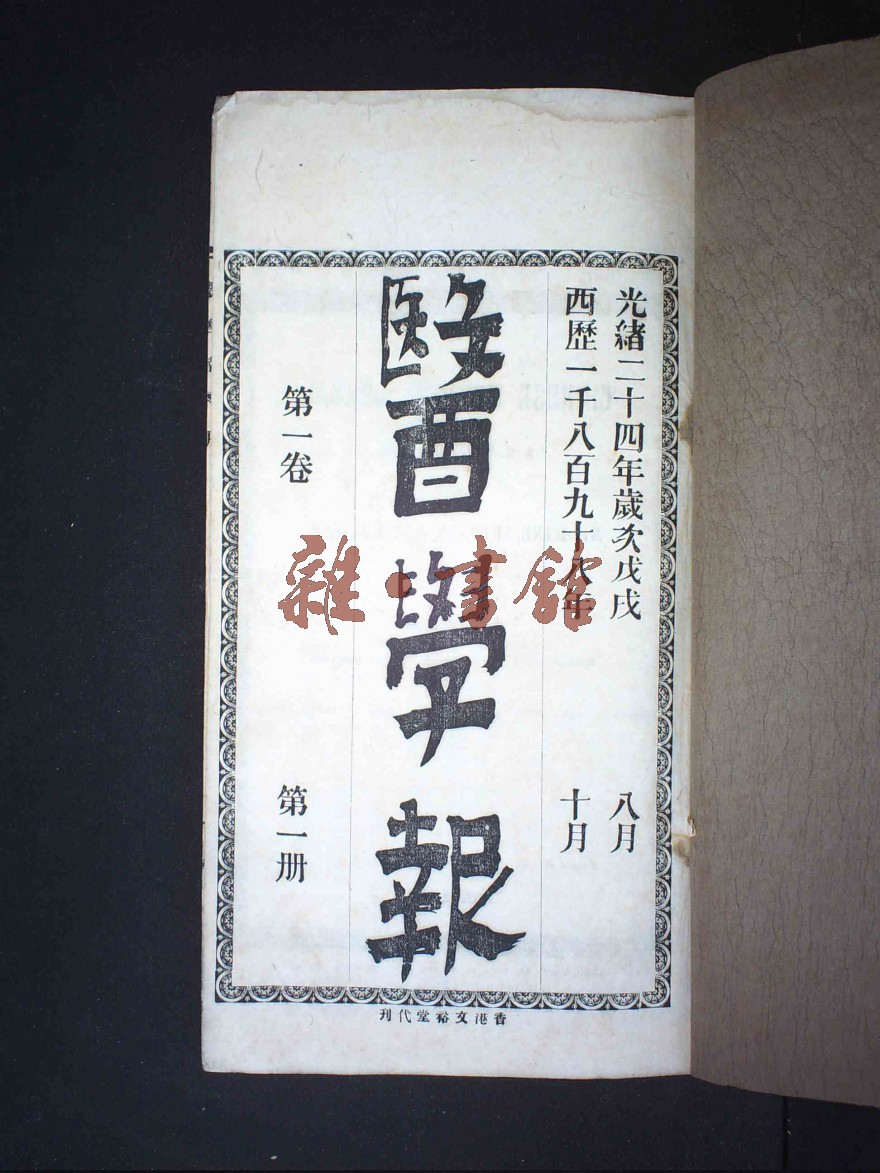 光緒二十四年歲次戊戌 八月
西歷一千八百九十八年 十月
醫學報
第一卷 第一册
香港文裕堂代刊
雜·書館